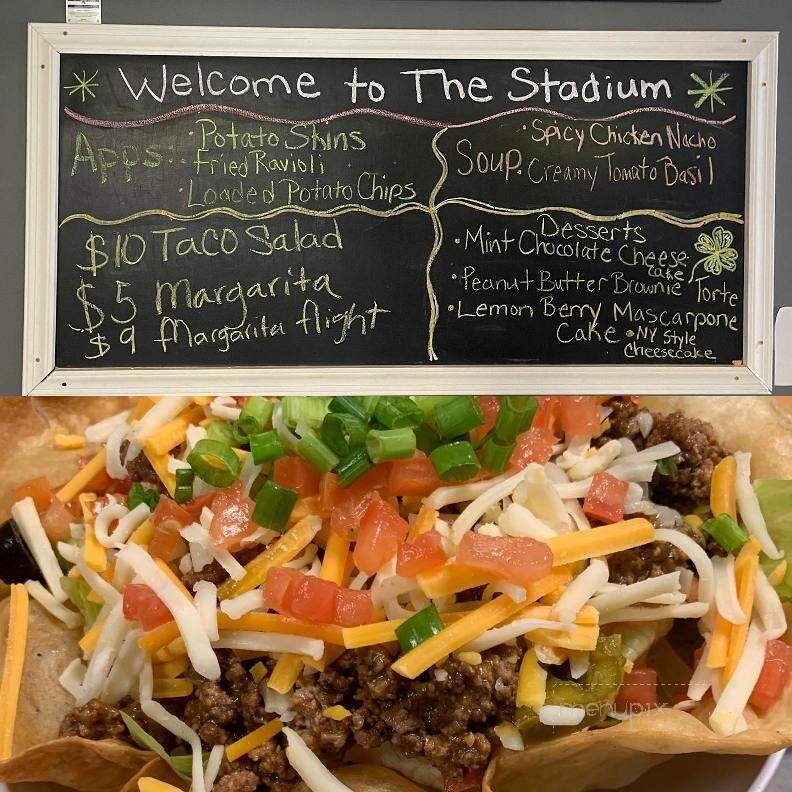 Welcome to The Stadium
Apps:
• Potato Skins
Fried Ravioli
• Loaded Potato Chips
Soup.
• Spicy Chicken Nacho
Creamy Tomato Basil
$10 Taco Salad
$5 Margarita
$9 Margarita flight
Desserts
• Mint Chocolate Cheese
cake
• Peanut Butter Brownie Torte
• Lemon Berry Mascarpone
Cake • NY Style
Cheesecake
menupix